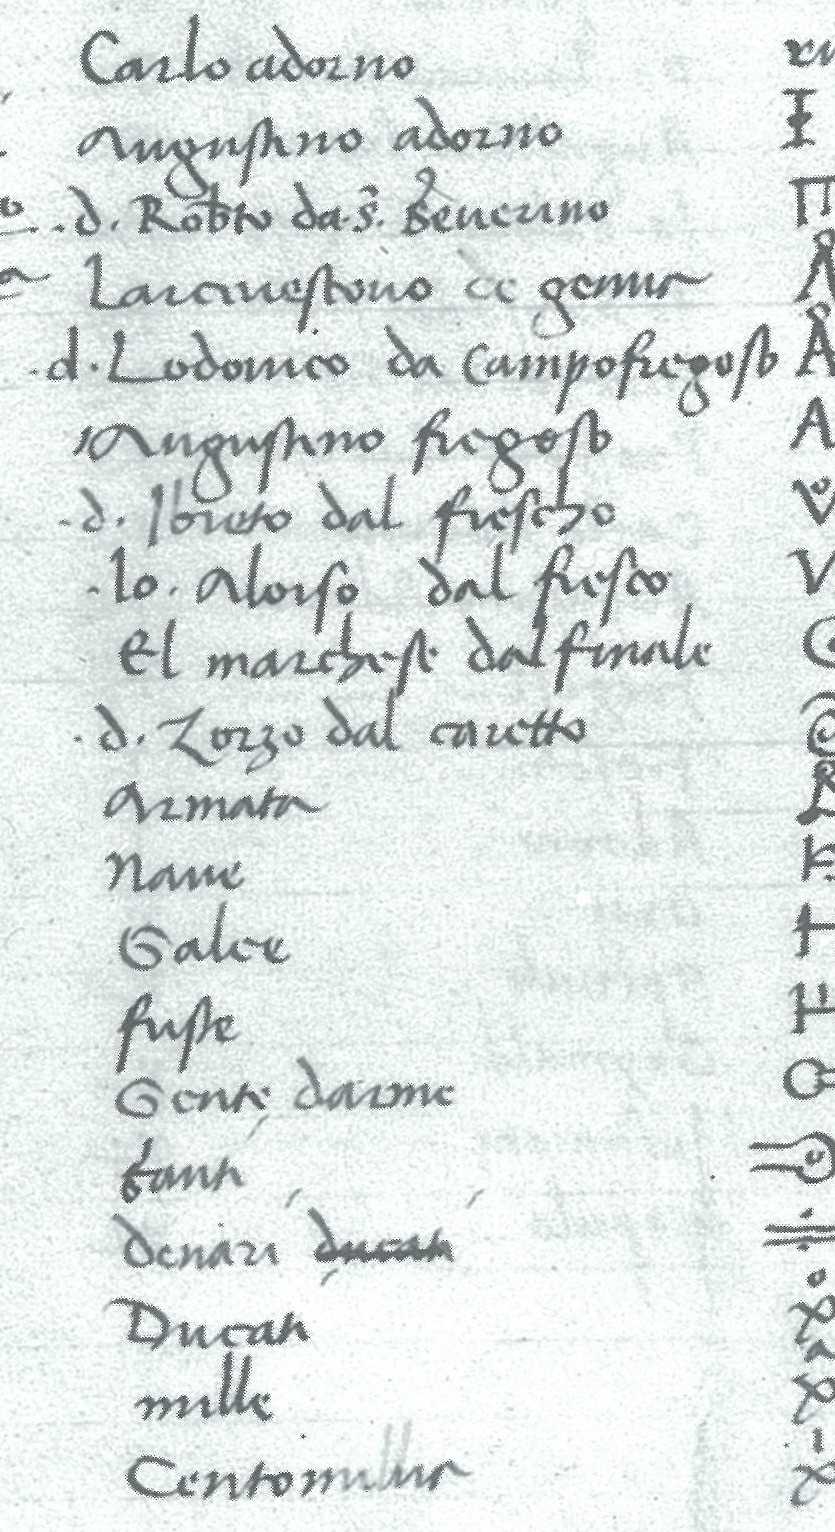 Carlo adorno
Augustino adorno
.d. Robto da .s. Seuerino
Larciuescouo de genua
.d. Lodouico da Campofregoso
Augustino fregoso
.d. Ibieto dal fiescho
.Io. Aloiso dal fiesco
El marchese dal finale
.d. Zorzo dal caretto
Armata
Naue
Galee
fuste
Gente darme
fanti
denari ducati
Ducati
mille
Centomilia